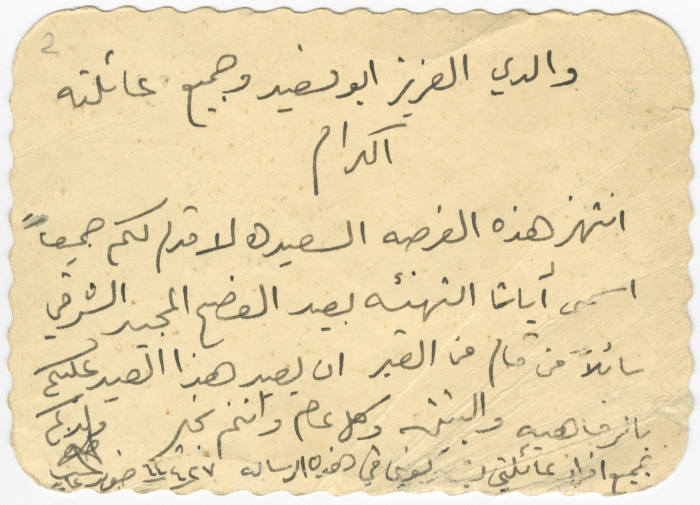 2
والدي العزيز ابو سعيد وجميع عائلته
اكرام
انتهز هذه الفرصه السعيده لاقدم لكم جميعاً
اسمى أيات التهنئه بعيد الفصح المجيد الشرقي
سائلاً من قام من القبر ان يعيد هذا العيد عليكم
بالرفاهيه والبنين وكل عام وانتم بخير ولدكم
جميع افراد عائلتي في هذه الرساله